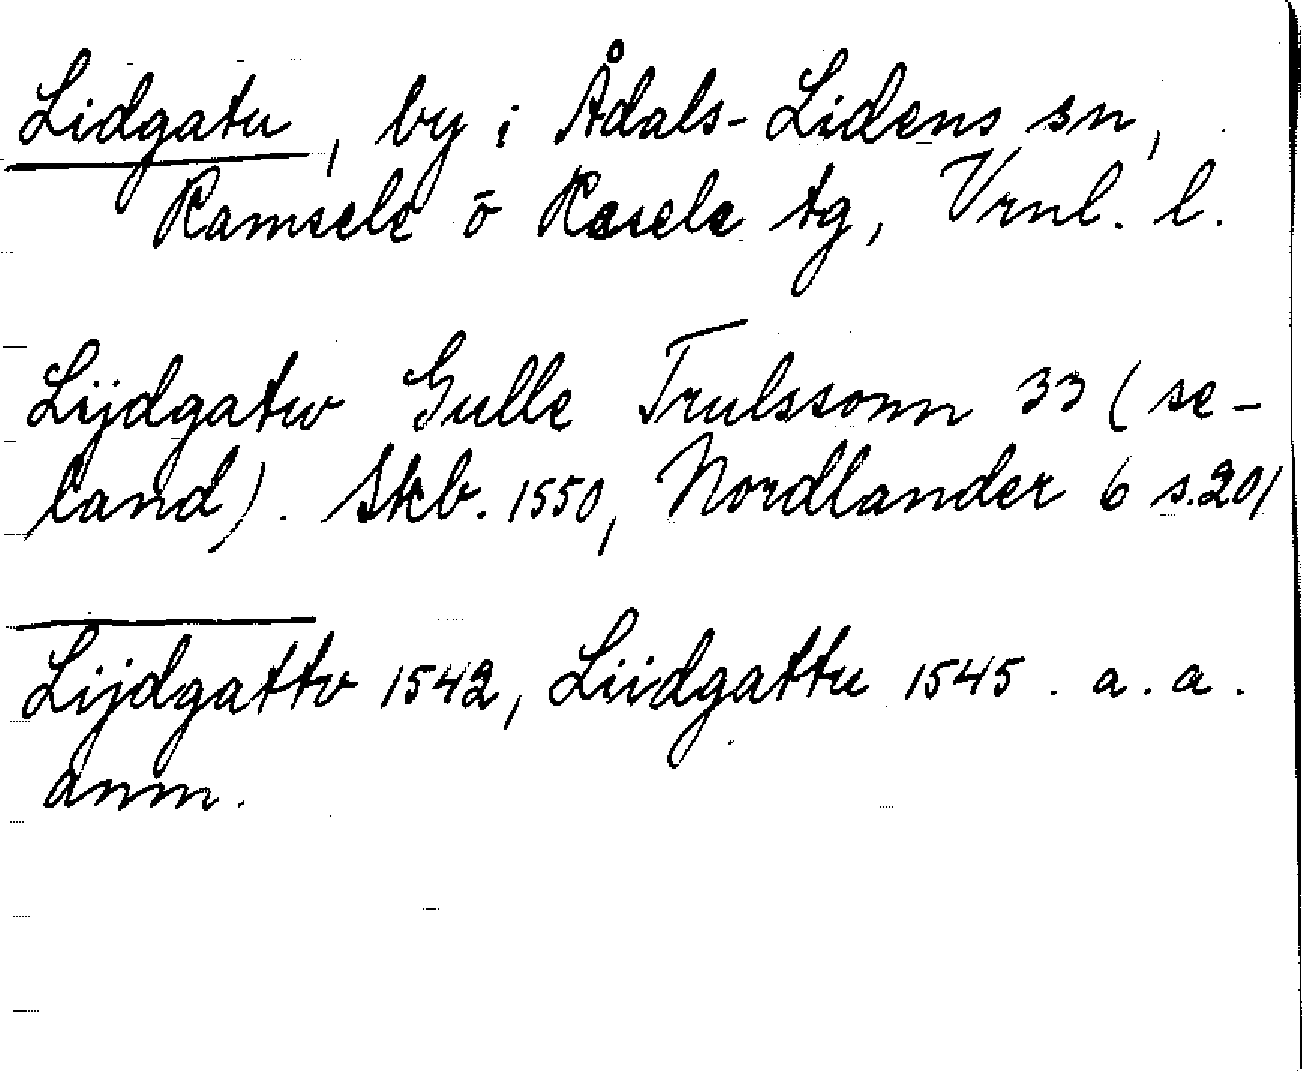 Lidgatu, by i Ådals-Lidens sn,
Ramsele o Resele tg, Vrnl. l.
Lijdgatw Gulle Trulssonn 33 (se-
land). Skb. 1550, Nordlander 6 s.201
Lijdgattv 1542, Liidgattu 1545. a.a.
anm.